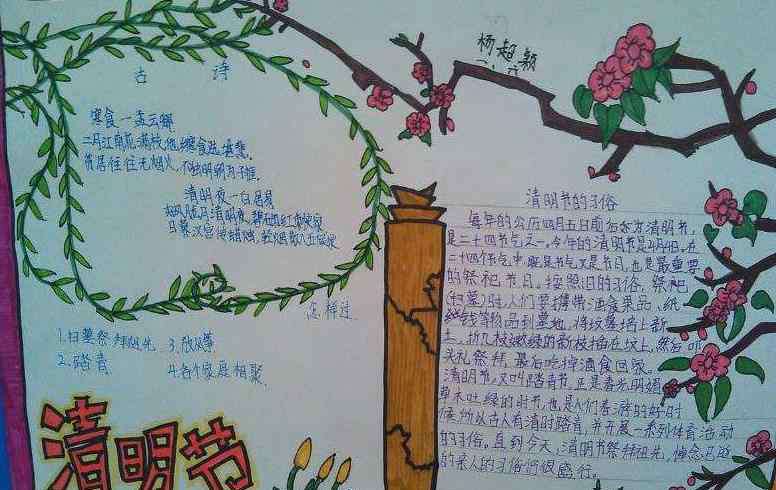 杨超颖
古 诗
寒食 一孟云卿
二月江南花满枝,他乡寒食远堪悲。
贫居往往无烟火,不独明朝为子推
清明夜一白居易
好风胧月清明夜,碧砌红轩
怎样过
1.扫墓祭拜祖先 3.放风筝
2.踏青 4.各个家庭相聚
清明节
清明节的习俗
每年的公历四月五日前后为清明节,
是二十四节气之一,今年的清明节是4月4日,在
二十四个节气中既是节气又是节日,也是最重要
的祭祀节日。按照旧的习俗,祭祀
(扫墓)时,人们要携带酒食果品、纸
钱等物品到墓地,将坟墓培上新
土,折几枝嫩绿的新枝插在坟上,然后叩
头礼祭拜,最后吃掉酒食回家。
清明节,又叫踏青节,正是春光明媚
草木吐绿的时节,也是人们春游的好时
候,所以古人有清明踏青,并开展一系列体育活动
的习俗。直到今天,清明节祭拜祖先,悼念已逝
的亲人的习俗仍很盛行。